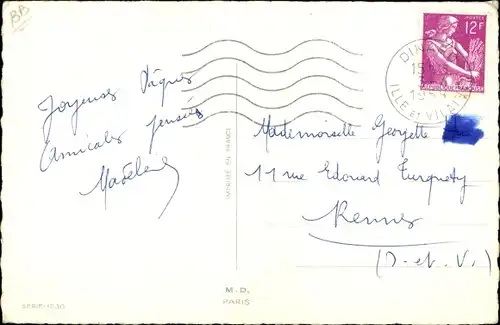 BB
POSTES
12F
DINA
ILLE ET VILAI
Joyeuses Pâques
Amicales pensées
Madeleine
IMPRIMÉ EN FRANCE
Mademoiselle Georgette
11 rue Edouard Turquety
Rennes
(D-et-V.)
M.D.
PARIS